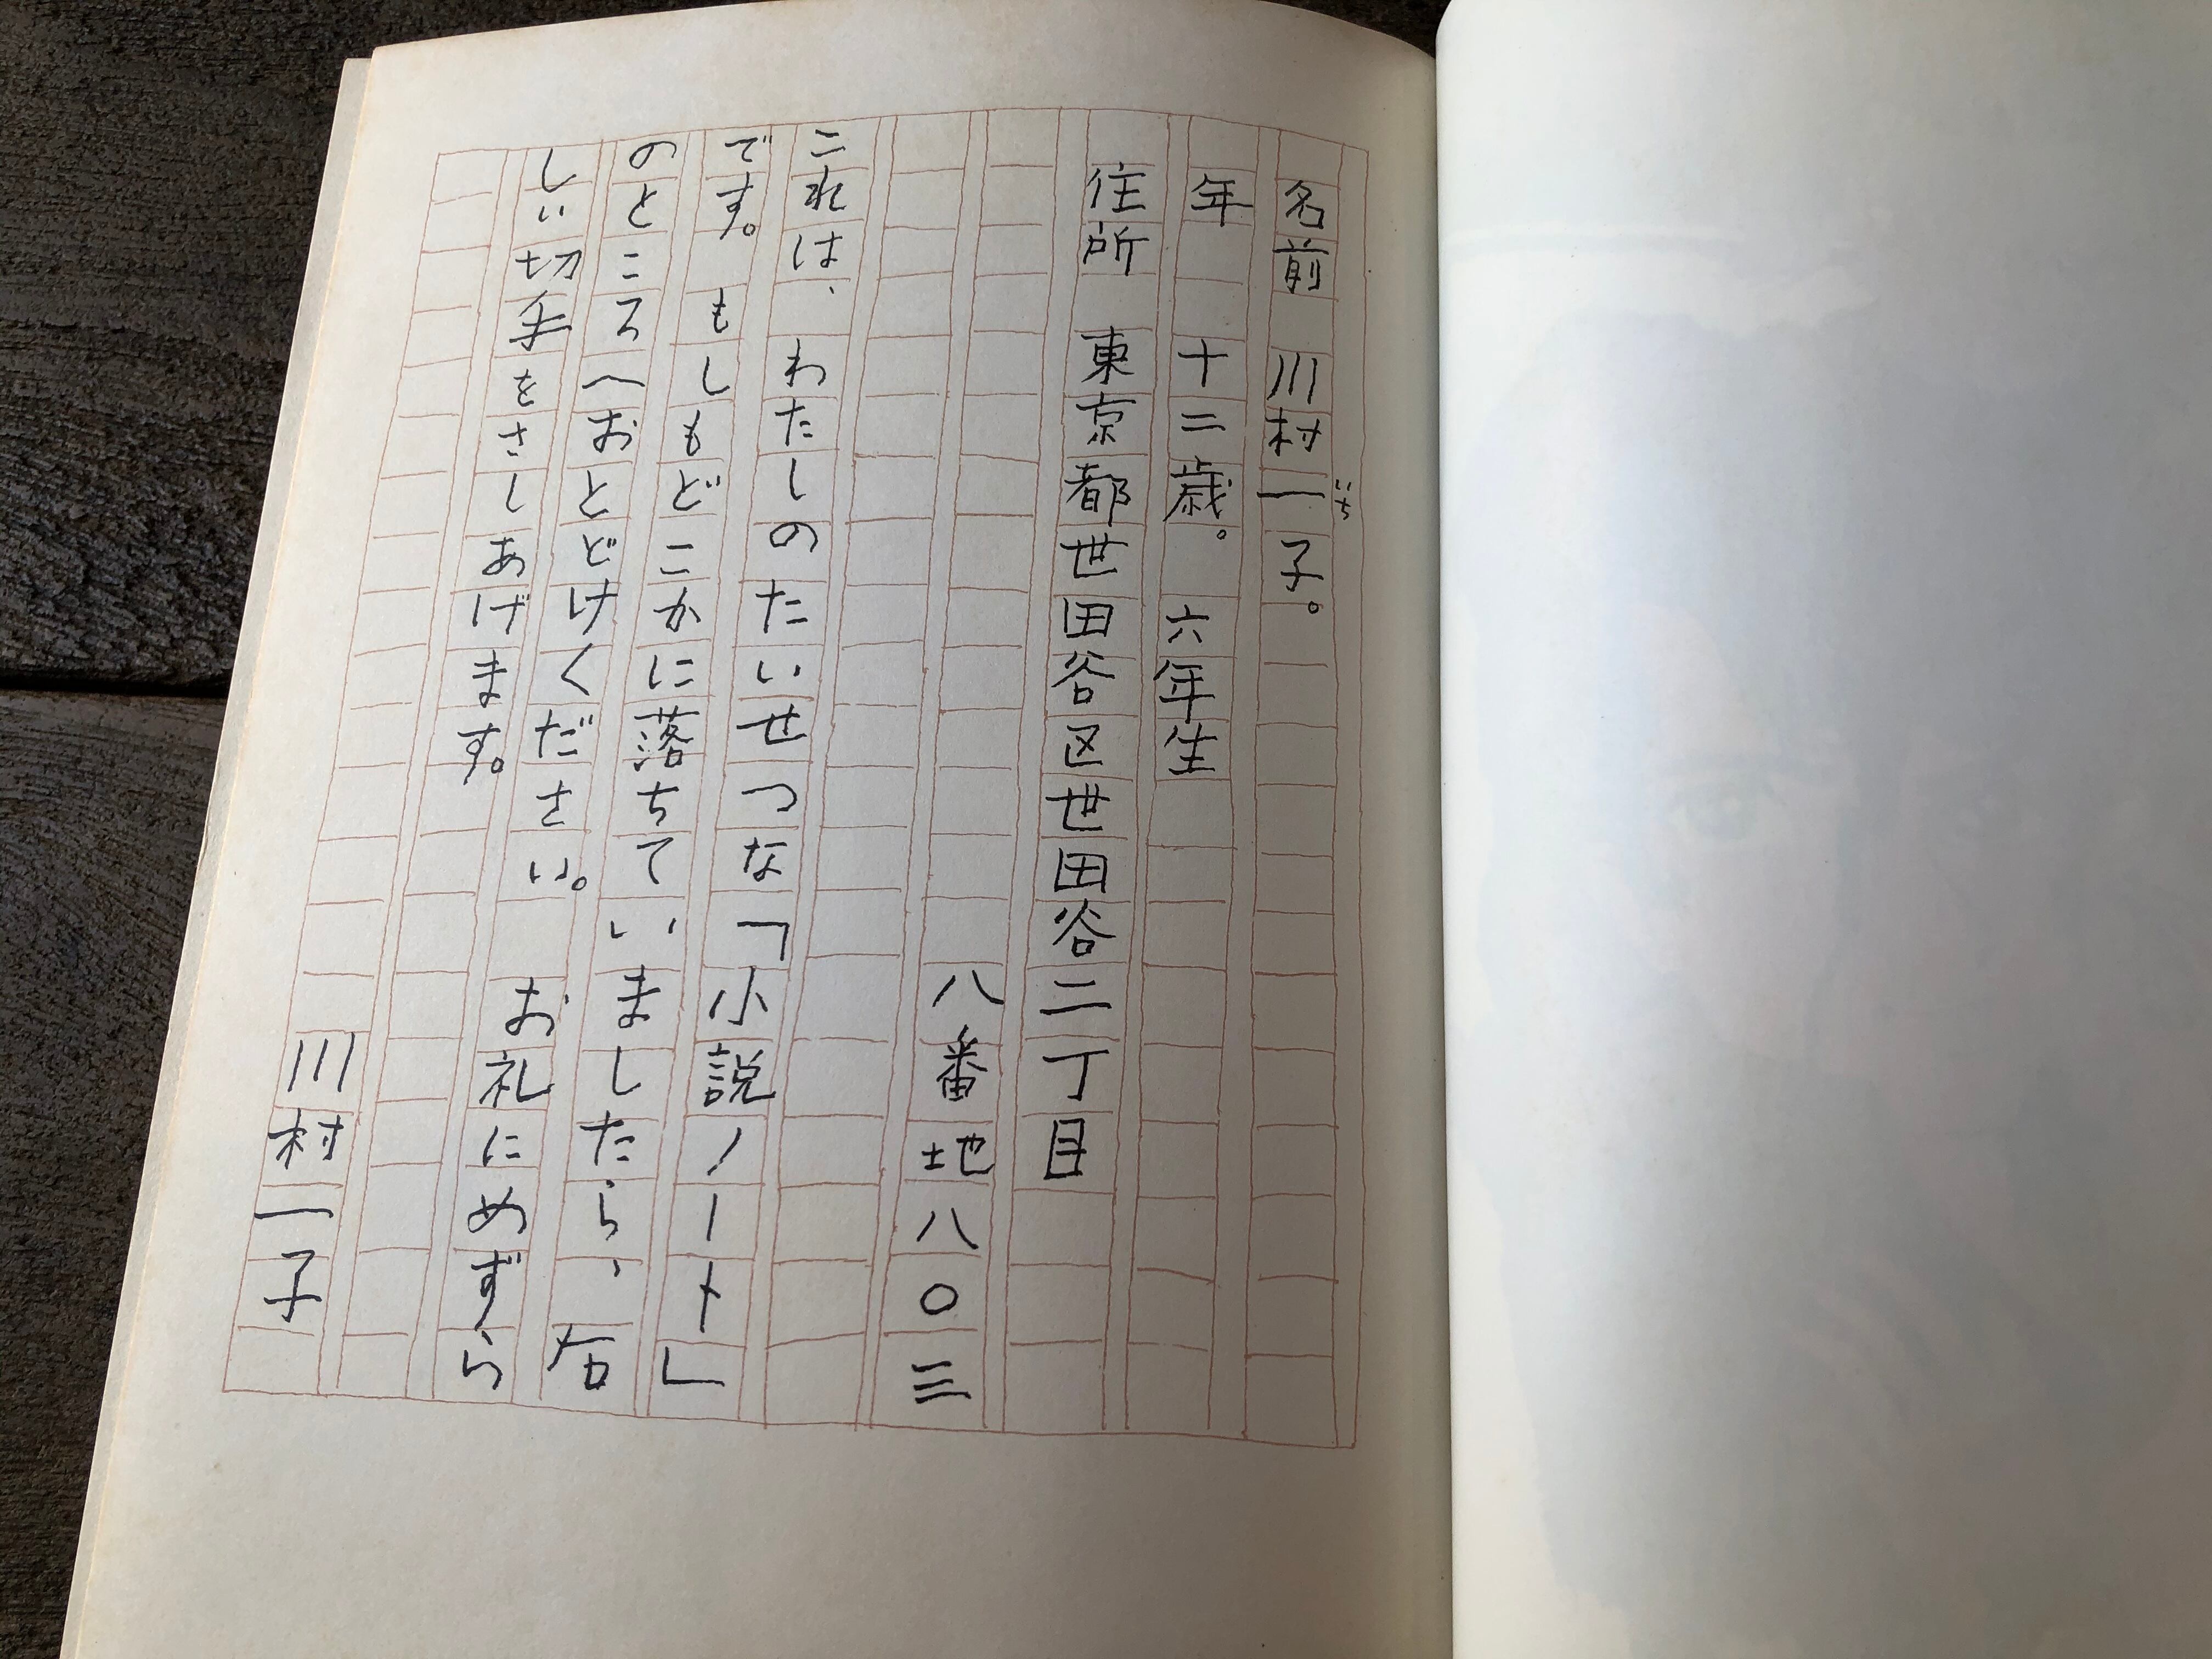 名前　川村一子。
いち
年　十二歳。　六年生
住所　東京都世田谷区世田谷二丁目
八番地八〇三
これは、わたしのたいせつな「小説ノート」
です。　もしもどこかに落ちていましたら、右
のところへおとどけください。　お礼にめずら
しい切手をさしあげます。
川村一子